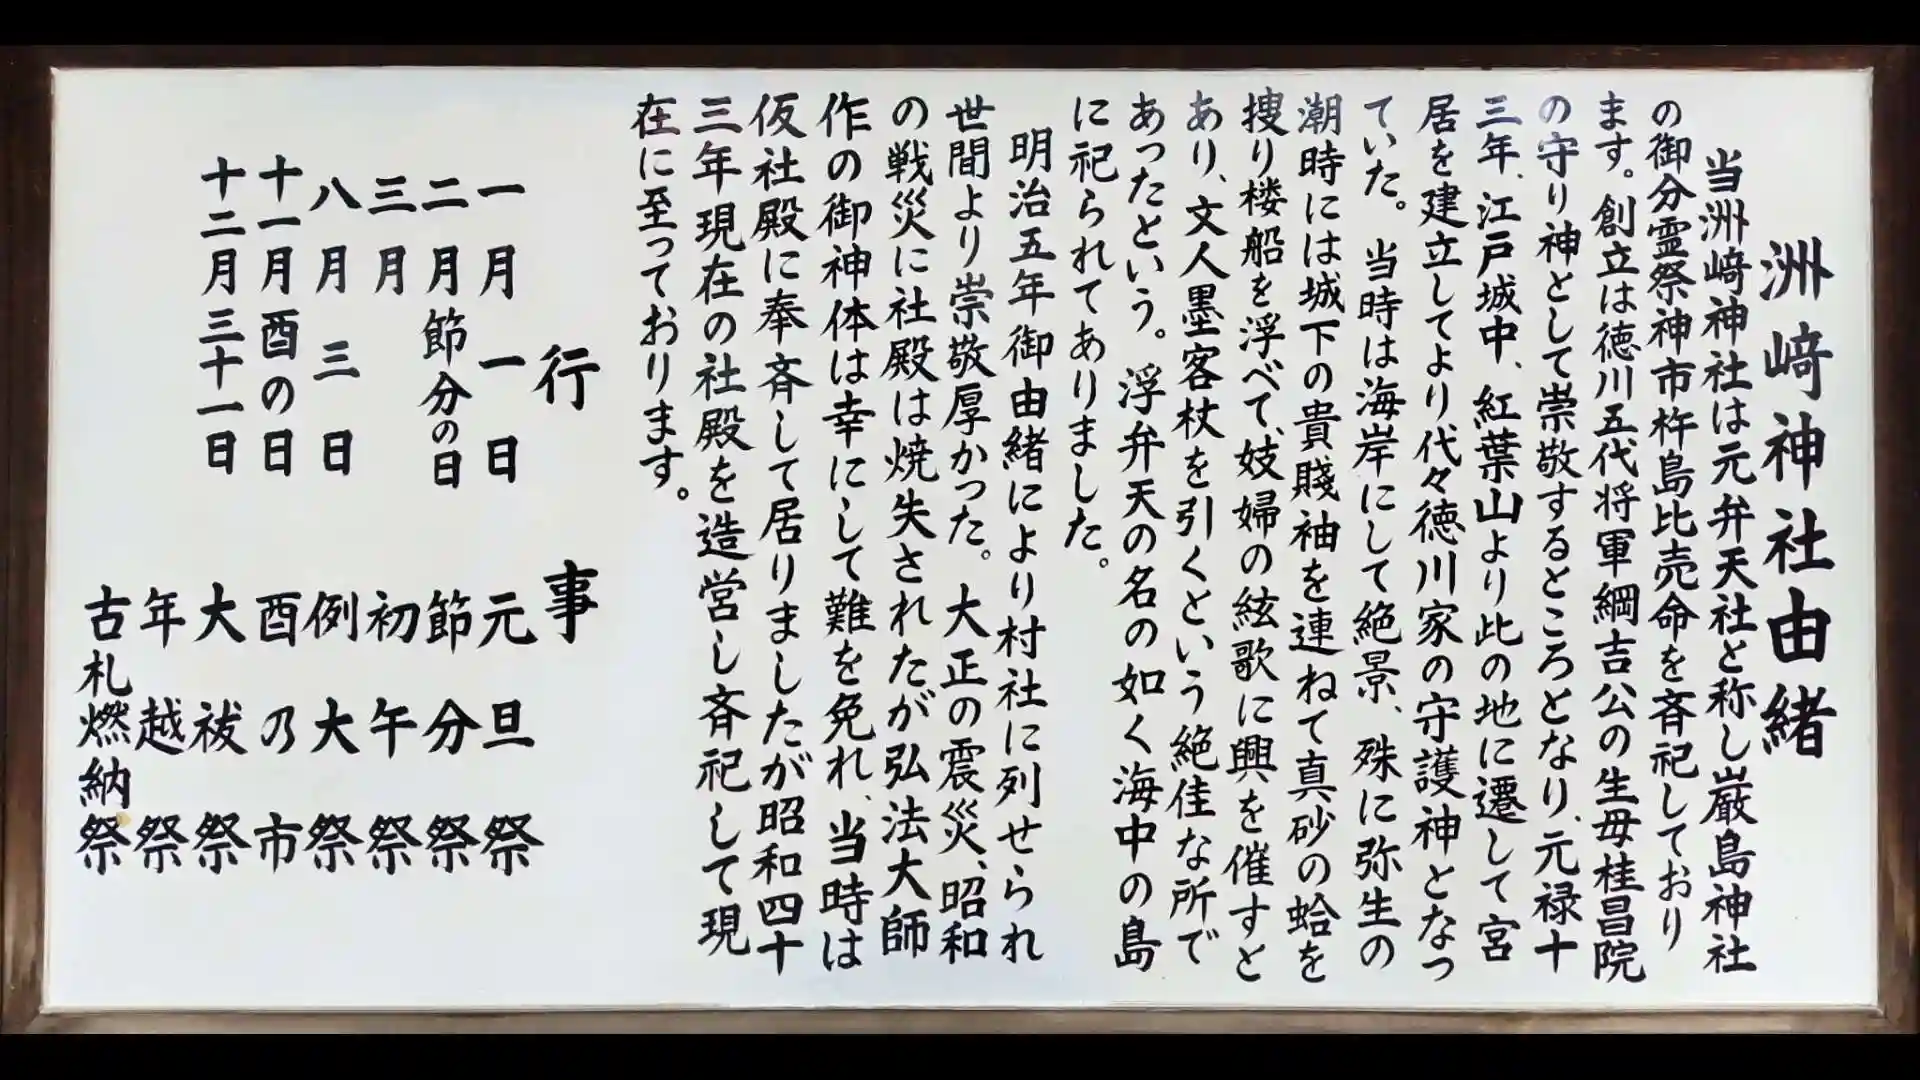 洲﨑神社由緒
当洲﨑神社は元弁天社と称し厳島神社
の御分霊祭神市杵島比売命を斉祀しており
ます。創立は徳川五代将軍綱吉公の生母桂昌院
の守り神として崇敬するところとなり、元禄十
三年、江戸城中、紅葉山より此の地に遷して宮
居を建立してより代々徳川家の守護神となっ
ていた。当時は海岸にして絶景、殊に弥生の
潮時には城下の貴賤袖を連ねて真砂の蛤を
捜り楼船を浮べて、妓婦の絃歌に興を催すと
あり、文人墨客杖を引くという絶佳な所で
あったという。浮弁天の名の如く海中の島
に祀られてありました。
明治五年御由緒により村社に列せられ
世間より崇敬厚かった。大正の震災、昭和
の戦災に社殿は焼失されたが弘法大師
作の御神体は幸にして難を免れ、当時は
仮社殿に奉斉して居りましたが昭和四十
三年現在の社殿を造営し斉祀して現
在に至っております。
行事
一月一日 元旦祭
二月節分の日 節分祭
三月 初午祭
八月三日 例大祭
十一月酉の日 酉の市
十二月三十一日 大祓祭
年越祭
古札燃納祭